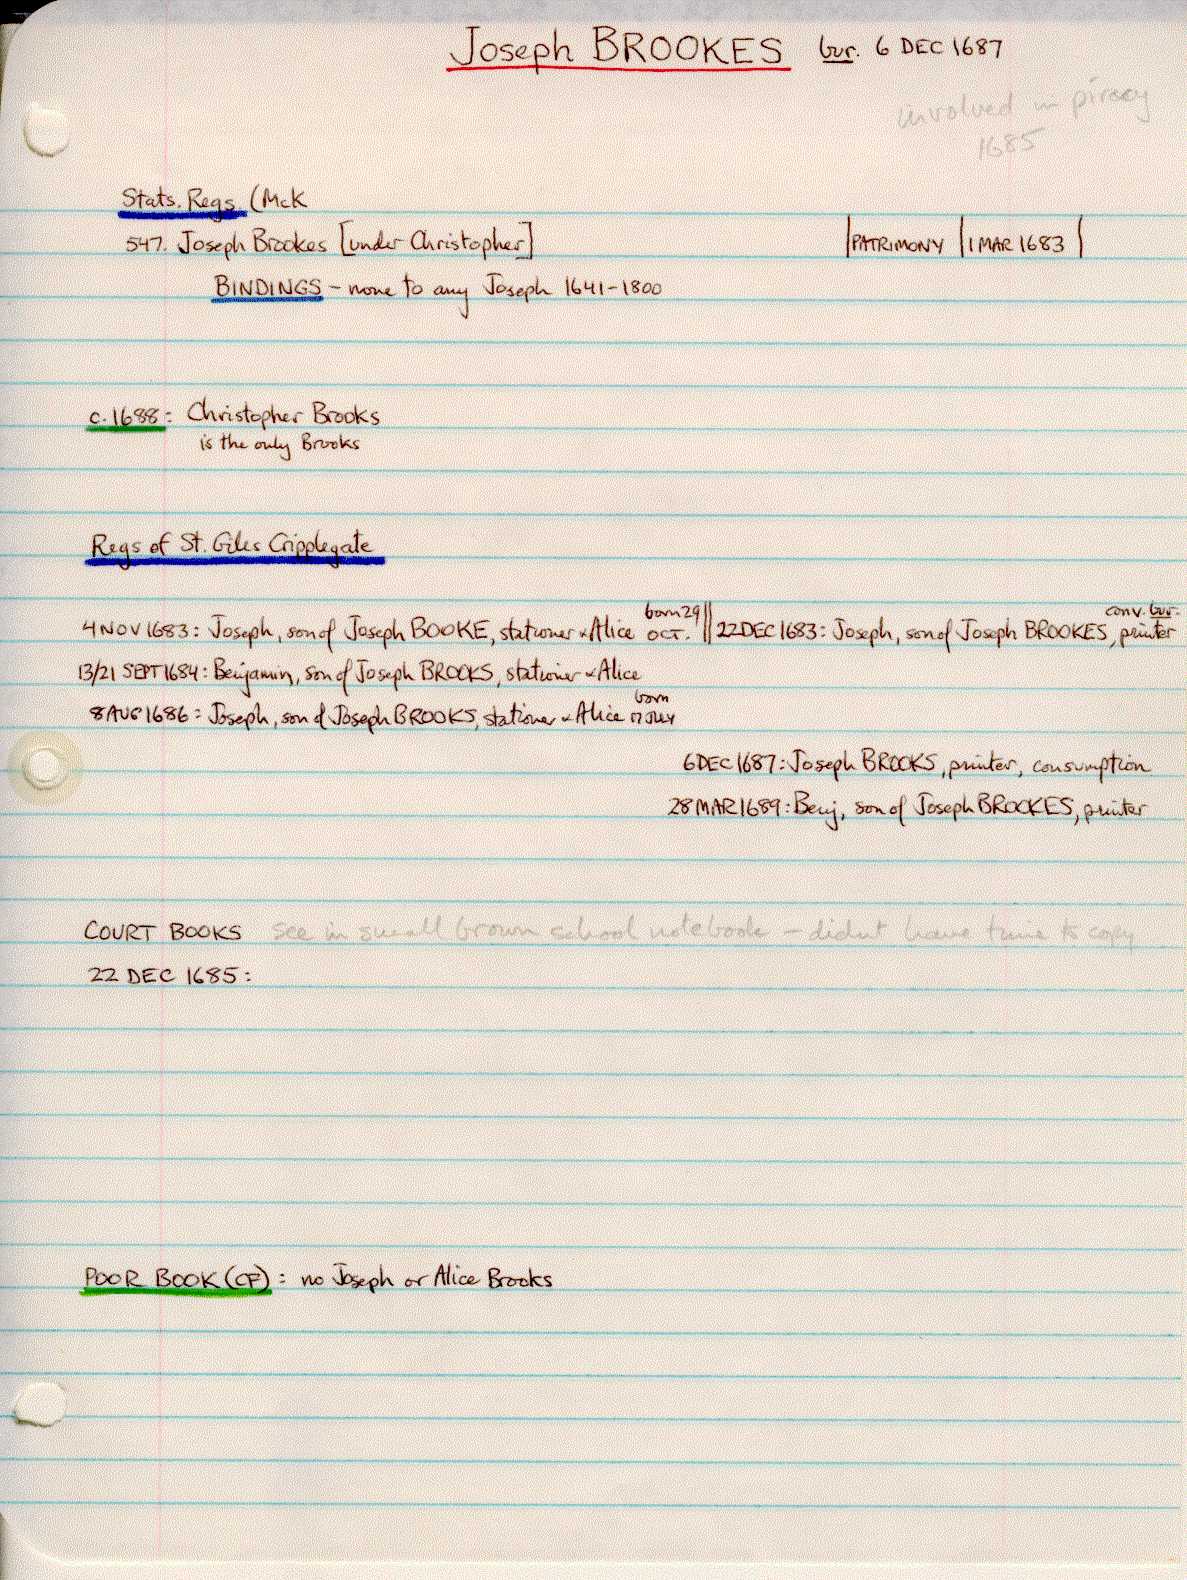 Joseph BROOKES bur. 6 DEC 1687
involved in piracy
1685
Stats. Regs. (McK
547. Joseph Brookes [under Christopher] |PATRIMONY |1 MAR 1683 |
BINDINGS – none to any Joseph 1641-1800
c. 1688: Christopher Brooks
is the only Brooks
Regs of St. Giles Cripplegate
born 29 conv. bur.
4 NOV 1683: Joseph, son of Joseph BOOKE, stationer & Alice OCT. || 22 DEC 1683: Joseph, son of Joseph BROOKES, printer
13/21 SEPT 1684: Benjamin, son of Joseph BROOKS, stationer & Alice
born
8 AUG 1686: Joseph, son of Joseph BROOKS, stationer & Alice 17 JULY
6 DEC 1687: Joseph BROOKS, printer, consumption
28 MAR 1689: Benj, son of Joseph BROOKES, printer
COURT BOOKS see in small brown school notebook - didnt have time to copy
22 DEC 1685:
POOR BOOK (CF): no Joseph or Alice Brooks